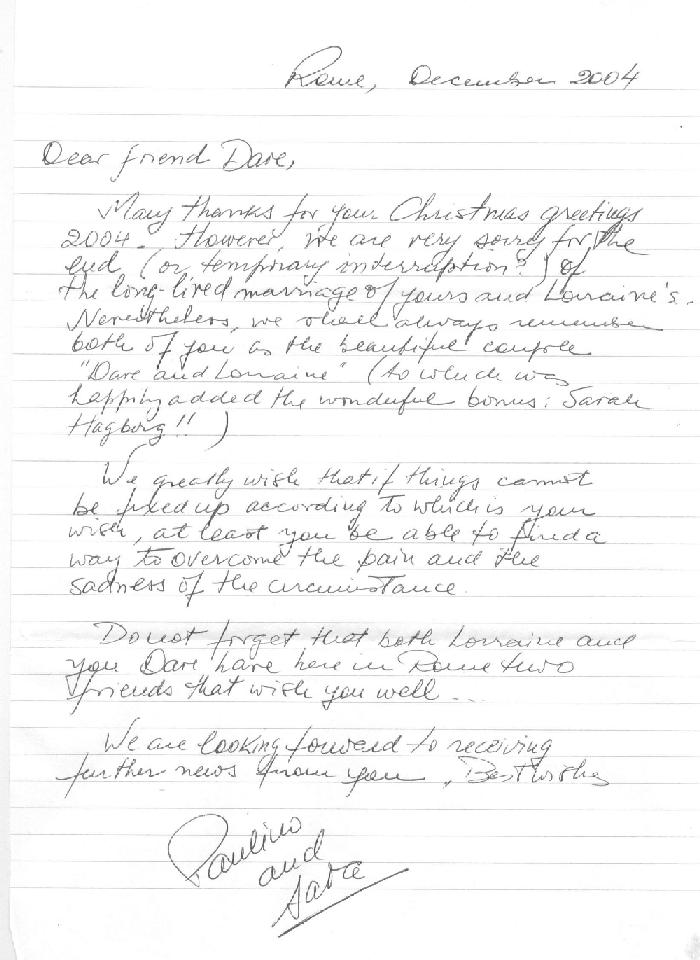 Rome, December 2004
Dear friend Dave,
Many thanks for your Christmas greetings
2004. However, we are very sorry for the
end (or temporary interruption?) of
the long-lived marriage of yours and Lorraine's.
Nevertheless, we shall always remember
both of you as the beautiful couple
"Dave and Lorraine" (to which was
happily added the wonderful bonus: Sarah
Hagberg!!)
We greatly wish that if things cannot
be fixed up according to which is your
wish, at least you be able to find a
way to overcome the pain and the
sadness of the circumstance.
Do not forget that both Lorraine and
you Dave have here in Rome two
friends that wish you well...
We are looking forward to receiving
further news from you. Best wishes
Paulino
and
Sara